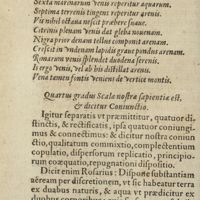 Sexta marinarum venis reperitur aquarum.
Septima terrenis tingens reperitur arenis.
Vix nihil octaua noscit præbere suaue.
Catrinis plenam venis dat gleba nouenam.
Nigra prior denam tellus componit arenam.
Crescit in vndenam lapidi grauè pondus arenam.
Romarum venis splendet duodena serenis.
It ergo venis, vel ab his distillat arenis.
Vena tamen fontis venient de vertice montis.
Quartus gradus Scalæ nostræ sapientiæ est,
& dicitur Coniunctio.
Igitur separatis vt præmittitur, quatuor di-
stinctis, & rectificatis, ipsa quatuor coniungi-
mus & connectimus: & dicitur nostra coniun
ctio, qualiratum commixtio, complectentium
copulatio, dispersorum replicatio, principio-
rum coæquatio, repugnantium dispositio.
Dicit enim Rosarius: Dispone substantiam
aëream per discretionem, vt sic habeatur terra
ex duabus naturis, & aqua vt prædicitur ex